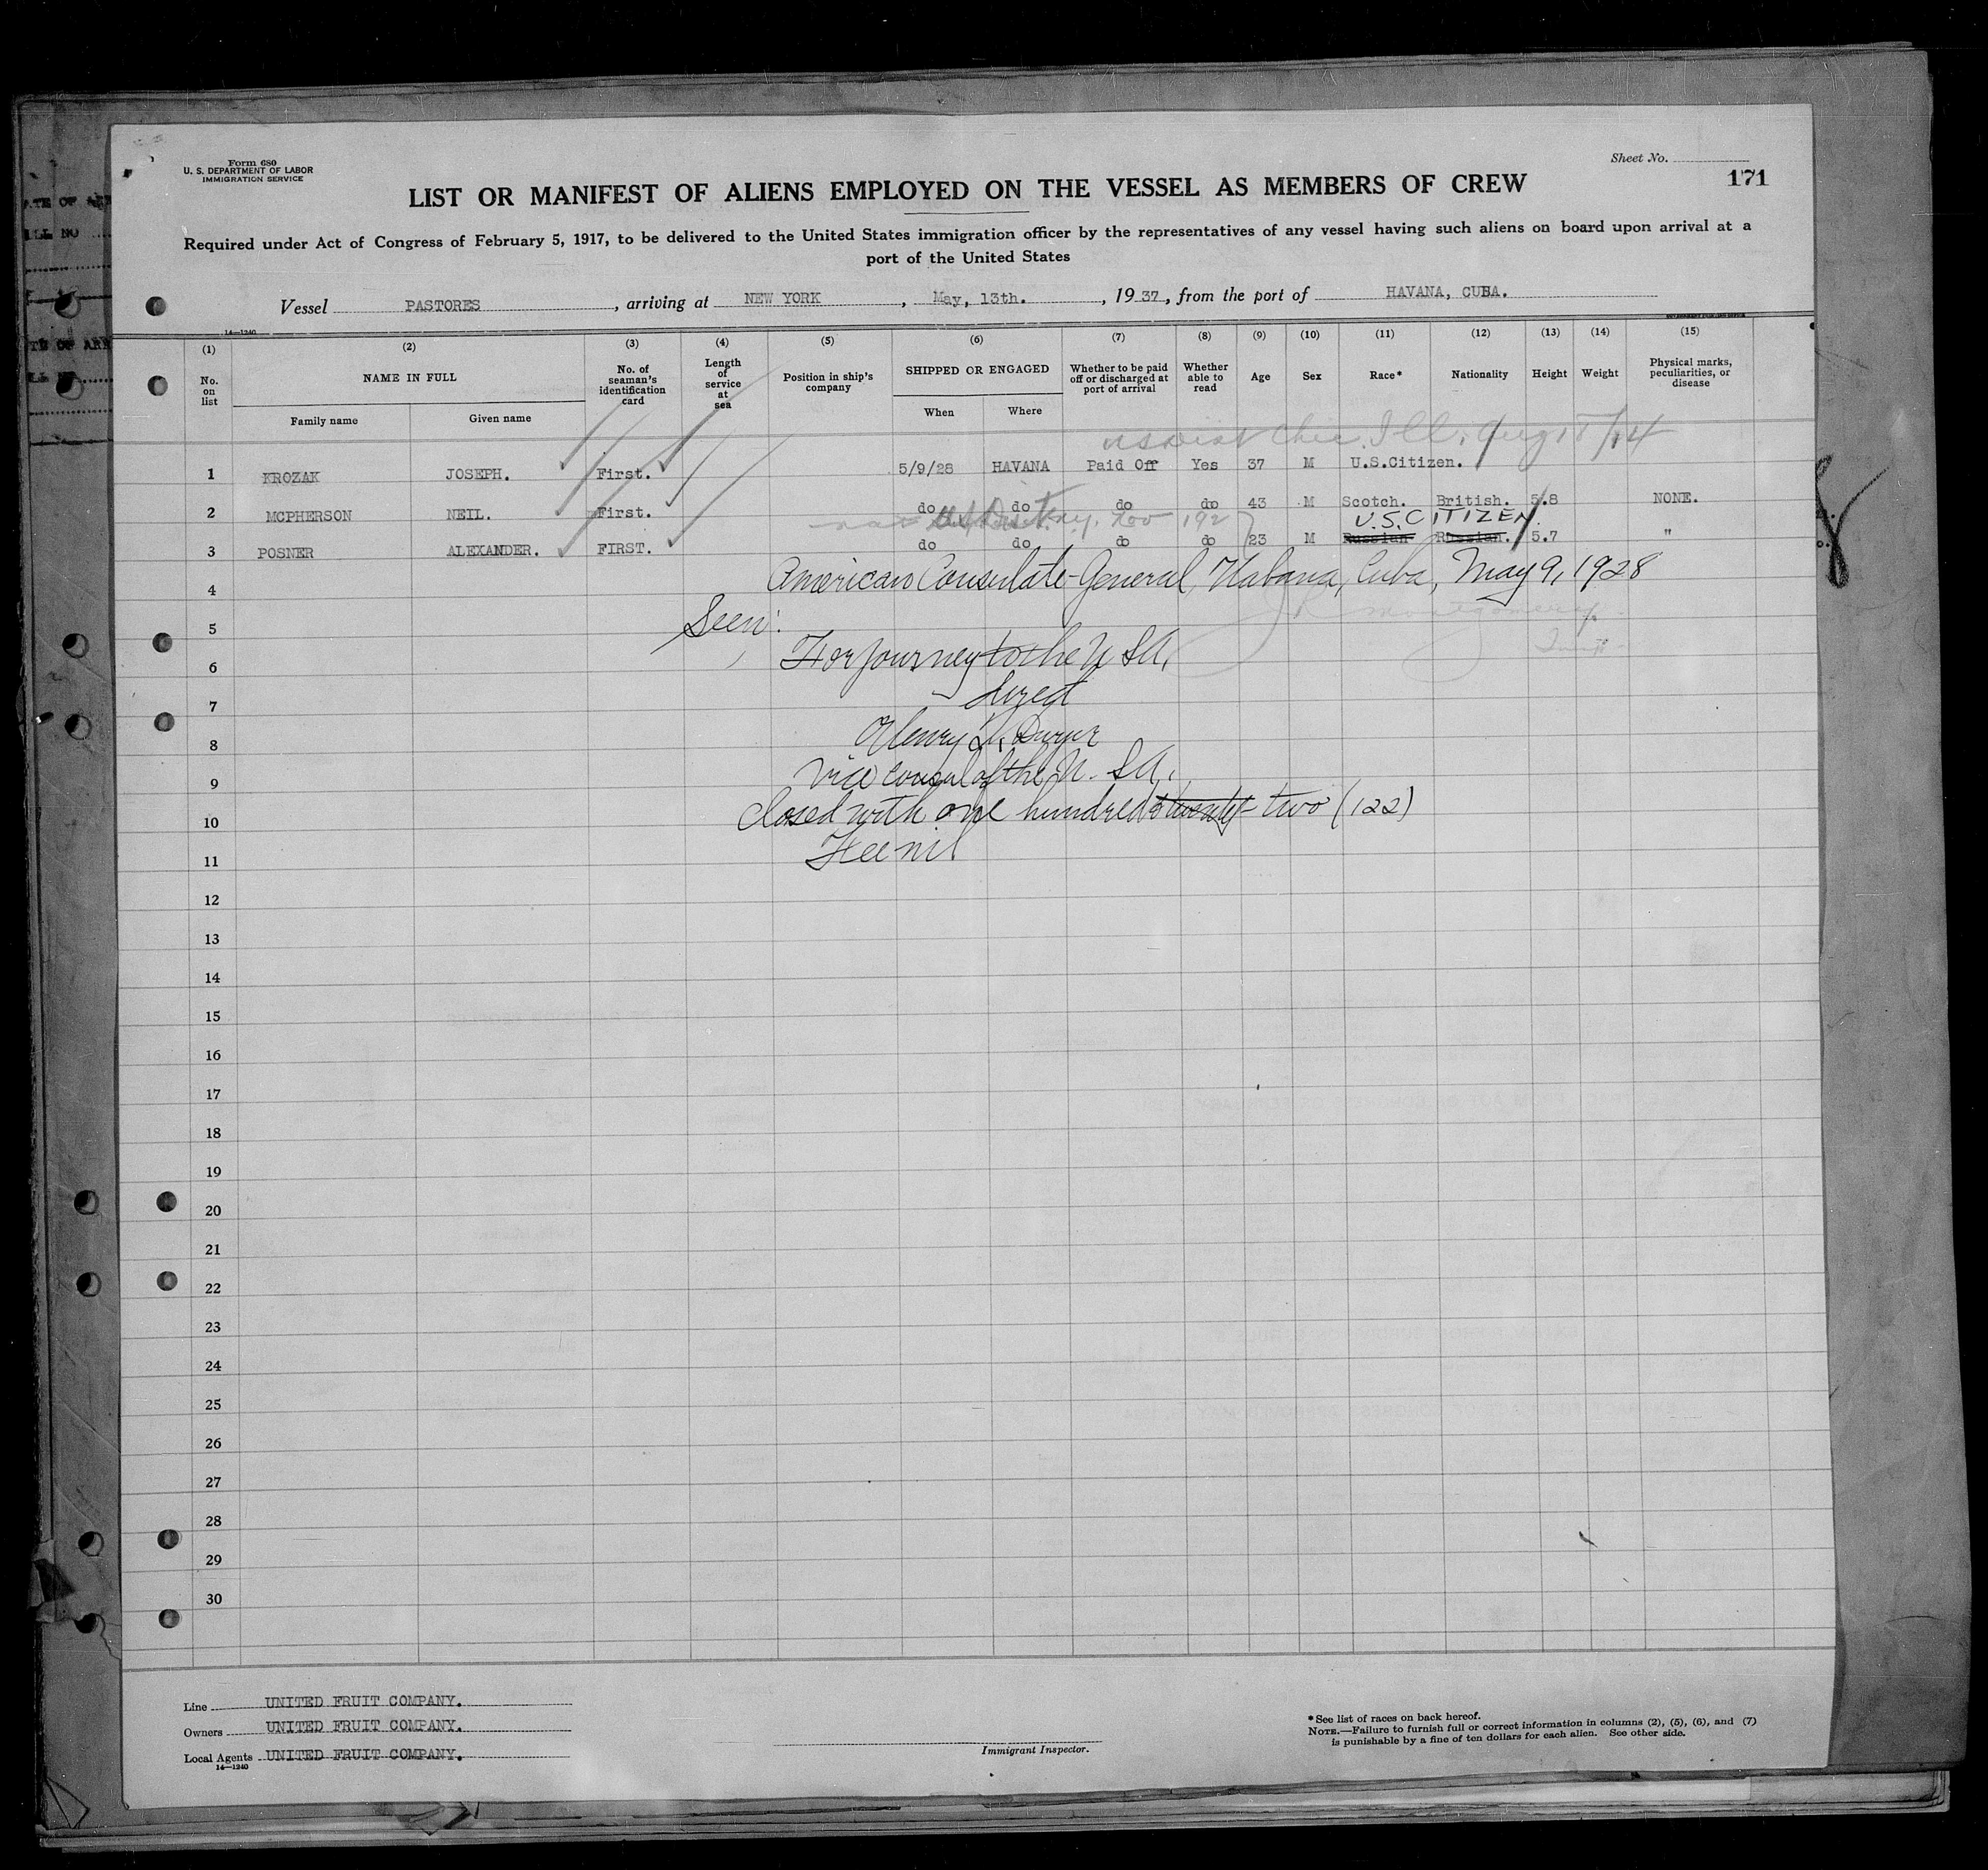 Form 680
U. S. DEPARTMENT OF LABOR
IMMIGRATION SERVICE
Sheet No.
171
LIST OR MANIFEST OF ALIENS EMPLOYED ON THE VESSEL AS MEMBERS OF CREW
Required under Act of Congress of February 5, 1917, to be delivered to the United States immigration officer by the representatives of any vessel having such aliens on board upon arrival at a
port of the United States
Vessel PASTORES, arriving at NEW YORK, May, 13th., 1937, from the port of HAVANA, CUBA.
14—1240
(1) (2) (3) (4) (5) (6) (7) (8) (9) (10) (11) (12) (13) (14) (15)
No. on list
NAME IN FULL
Family name Given name
No. of seaman's identification card
Length of service at sea
Position in ship's company
SHIPPED OR ENGAGED
When Where
Whether to be paid off or discharged at port of arrival
Whether able to read
Age Sex Race* Nationality Height Weight
Physical marks, peculiarities, or disease
Ill. Aug 14
1 KROZAK JOSEPH. First. 5/9/28 HAVANA Paid Off Yes 37 M U.S.Citizen.
2 MCPHERSON NEIL. First. do do do do 43 M Scotch. British. 5.8 NONE.
U.S. CITIZEN
3 POSNER ALEXANDER. FIRST. do do do do 23 M Russian Russian. 5.7 "
4 American Consulate General, Habana, Cuba, May 9, 1928
Montgomery
5 Seen:
6 For journey to the U S A,
7 direct
8 Henry
9 Vice Consul of the U. S A.
10 Closed with one hundred & twenty two (122)
11 Fee nil
12
13
14
15
16
17
18
19
20
21
22
23
24
25
26
27
28
29
30
Line UNITED FRUIT COMPANY.
Owners UNITED FRUIT COMPANY.
Local Agents UNITED FRUIT COMPANY.
14—1240
Immigrant Inspector.
*See list of races on back hereof.
NOTE.—Failure to furnish full or correct information in columns (2), (5), (6), and (7)
is punishable by a fine of ten dollars for each alien. See other side.